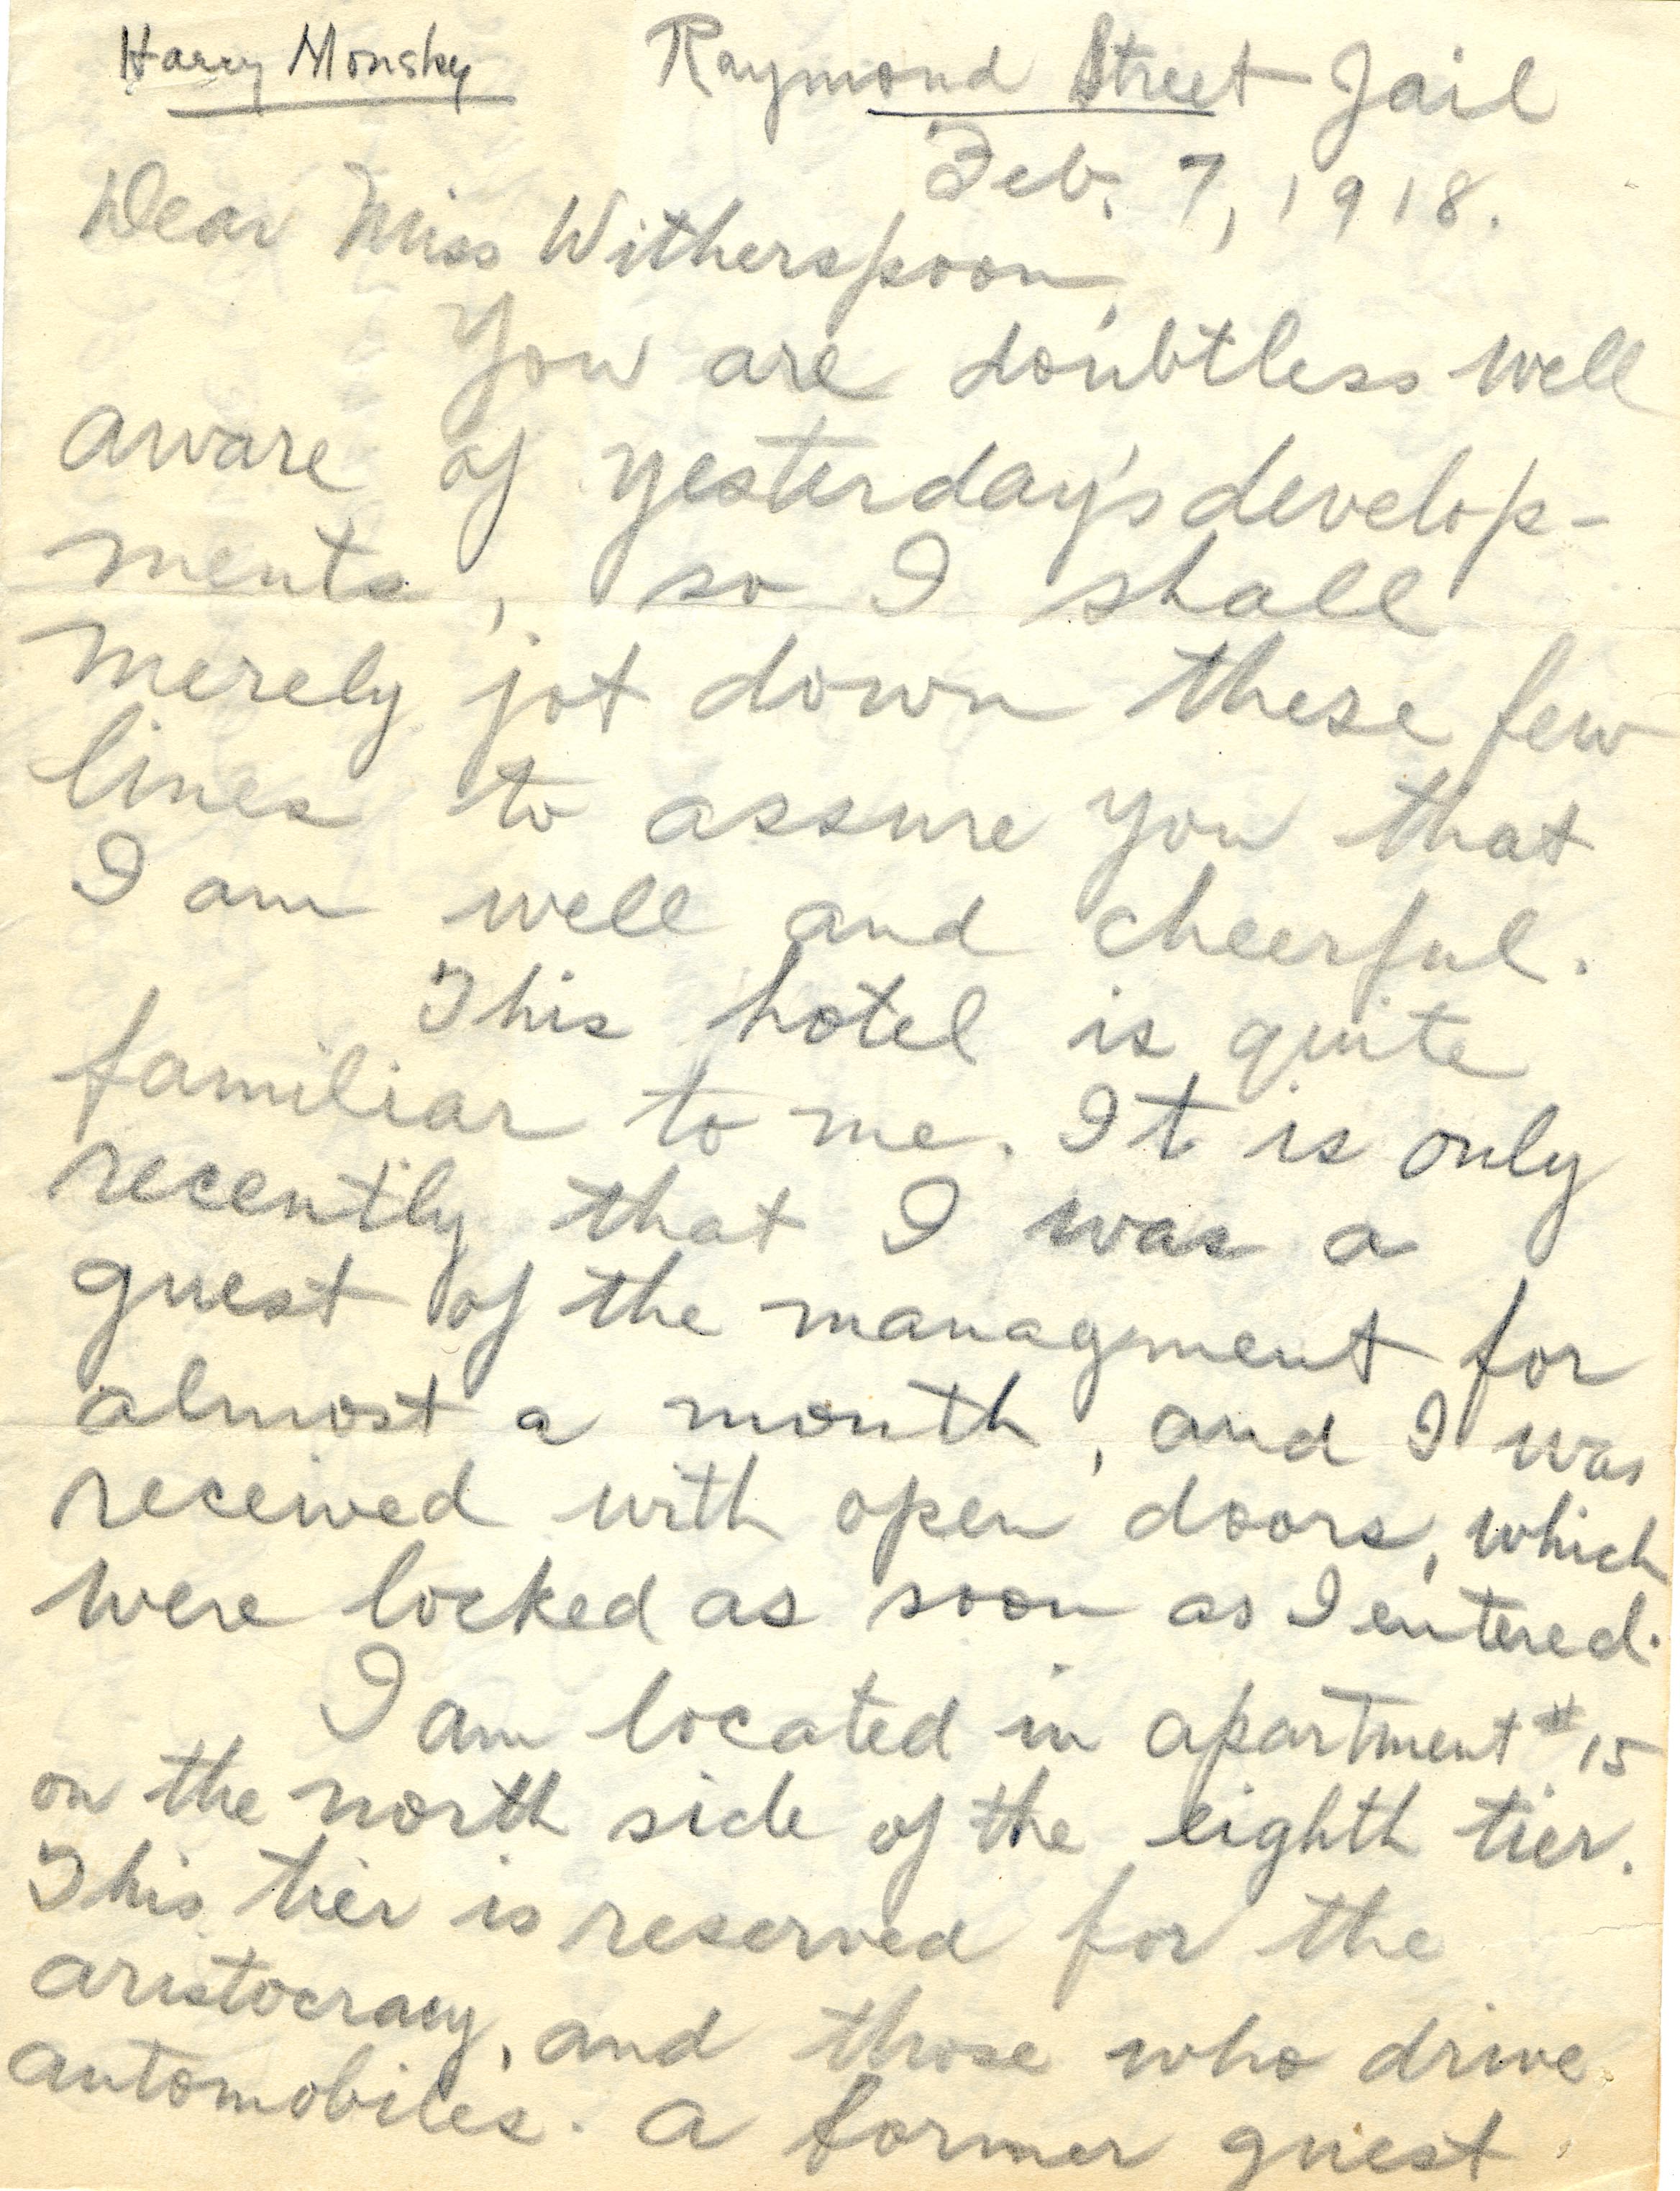 Harry Monsky
Raymond Street Jail
Feb. 7, 1918.
Dear Miss Witherspoon,
You are doubtless well
aware of yesterday's develop-
ments, so I shall
merely jot down these few
lines to assure you that
I am well and cheerful.
This hotel is quite
familiar to me. It is only
recently that I was a
guest of the managment for
almost a month, and I was
received with open doors, which
were locked as soon as I entered.
I am located in apartment #15
on the north side of the eighth tier.
This tier is reserved for the
aristocracy, and those who drive
automobiles. A former guest